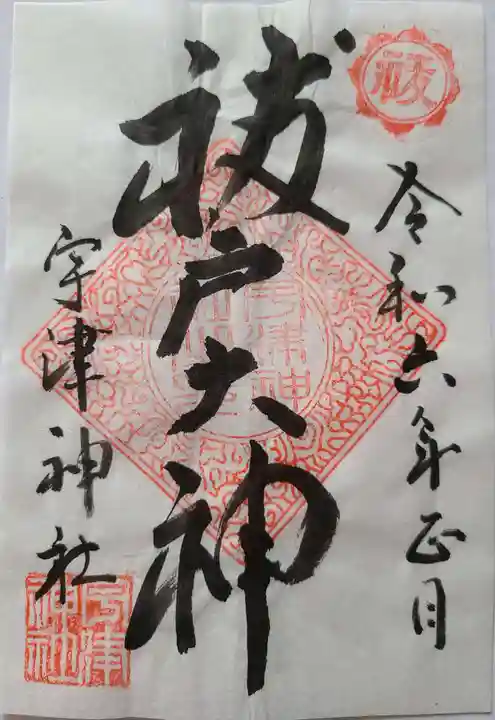 祓
令和六年正月
祓戸大神
宇津神社
宇津
神社